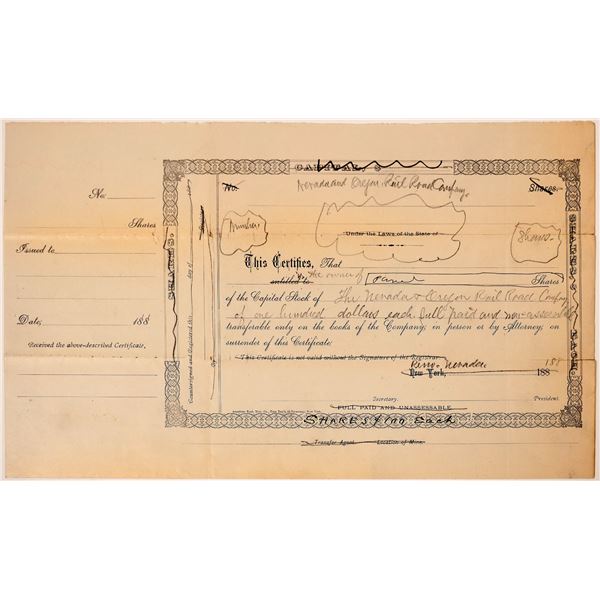 CAPITAL, $
Nevada and Oregon Rail Road Company.
No.
No.
Shares
Shares
Number
Shares.
Under the Laws of the State of
Issued to
This Certifies, That
entitled to
is the owner of
Shares
of the Capital Stock of The Nevada & Oregon Rail Road Company
of one hundred dollars each full paid and non-assessable
Date, 188
transferable only on the books of the Company, in person or by Attorney, on
surrender of this Certificate.
Received the above-described Certificate.
This Certificate is not valid without the Signature of the Registrar.
Reno, Nevada 188
New York, 188
Secretary.
President.
FULL PAID AND UNASSESSABLE.
SHARES $100 Each
Transfer Agent. Location of Mine.
Countersigned and Registered this day of 188
By
SHARES
SHARES $ EACH.